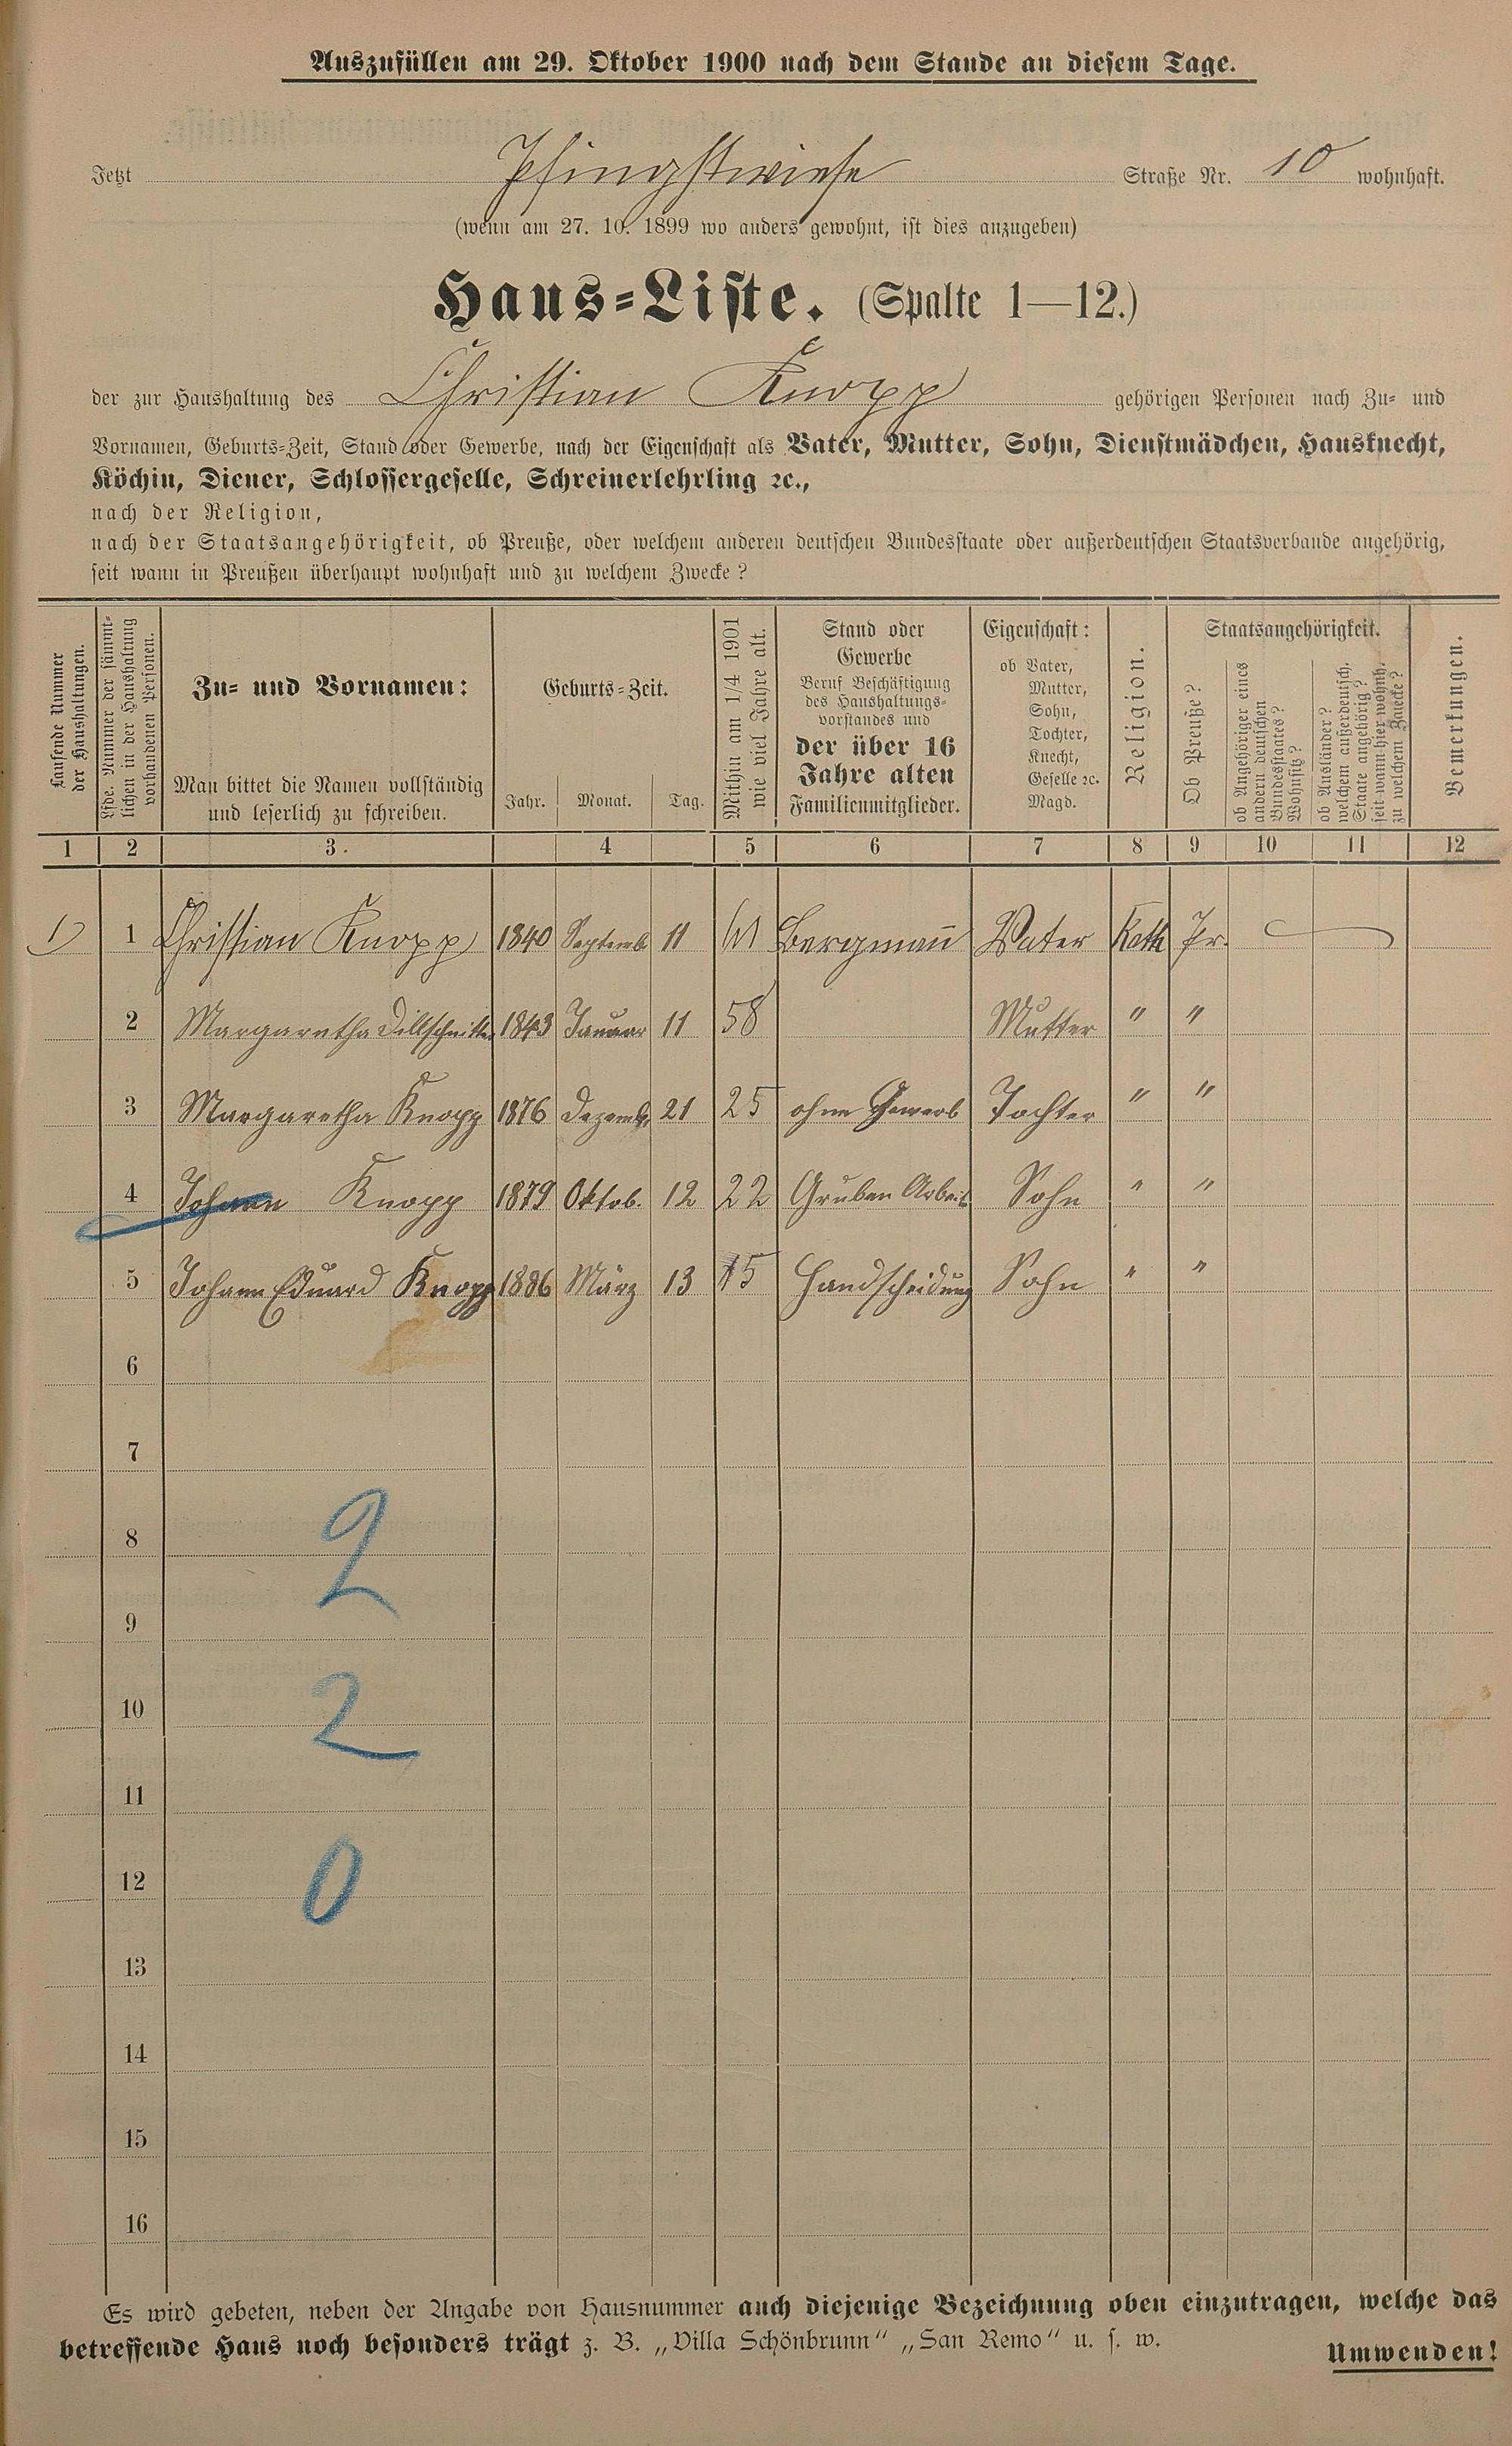 Auszufüllen am 29. Oktober 1900 nach dem Stande an diesem Tage.
Jetzt Pfingstwiese Straße Nr. 10 wohnhaft.
(wenn am 27. 10. 1899 wo anders gewohnt, ist dies anzugeben)
Haus-Liste. (Spalte 1—12.)
der zur Haushaltung des Christian Knopp gehörigen Personen nach Zu- und
Vornamen, Geburts-Zeit, Stand oder Gewerbe, nach der Eigenschaft als Vater, Mutter, Sohn, Dienstmädchen, Hausknecht,
Köchin, Diener, Schlossergeselle, Schreinerlehrling ꝛc.,
nach der Religion,
nach der Staatsangehörigkeit, ob Preuße, oder welchem anderen deutschen Bundesstaate oder außerdeutschen Staatsverbande angehörig,
seit wann in Preußen überhaupt wohnhaft und zu welchem Zwecke?
Laufende Nummer
der Haushaltungen.
Lfde. Nummer der sämmt-
lichen in der Haushaltung
vorhandenen Personen.
Zu- und Vornamen:
Man bittet die Namen vollständig
und leserlich zu schreiben.
Geburts-Zeit.
Jahr. Monat. Tag.
Mithin am 1/4 1901
wie viel Jahre alt.
Stand oder
Gewerbe
Beruf Beschäftigung
des Haushaltungs-
vorstandes und
der über 16
Jahre alten
Familienmitglieder.
Eigenschaft:
ob Vater,
Mutter,
Sohn,
Tochter,
Knecht,
Geselle ꝛc.
Magd.
Religion.
Staatsangehörigkeit.
Ob Preuße?
ob Angehöriger eines
andern deutschen
Bundesstaates?
Wohnsitz?
ob Ausländer?
welchem außerdeutsch.
Staate angehörig?
seit wann hier wohnh.
zu welchem Zwecke?
Bemerkungen.
1 2 3. 4 5 6 7 8 9 10 11 12
1) 1 Christian Knopp 1840 Septemb. 11 61 Bergmañ Vater Kath Pr.
2 Margaretha 1843 Januar 11 58 Mutter " "
3 Margaretha Knopp 1876 Dezemb. 21 25 ohne Gewerb Tochter " "
4 Johann Knopp 1879 Oktob. 12 22 Gruben Arbeit. Sohn " "
5 Johann Eduard Knopp 1886 März 13 15 Handscheidung Sohn " "
6
7
8
2
9
10
2
11
12
0
13
14
15
16
Es wird gebeten, neben der Angabe von Hausnummer auch diejenige Bezeichnung oben einzutragen, welche das
betreffende Haus noch besonders trägt z. B. „Villa Schönbrunn" „San Remo" u. s. w.
Umwenden!